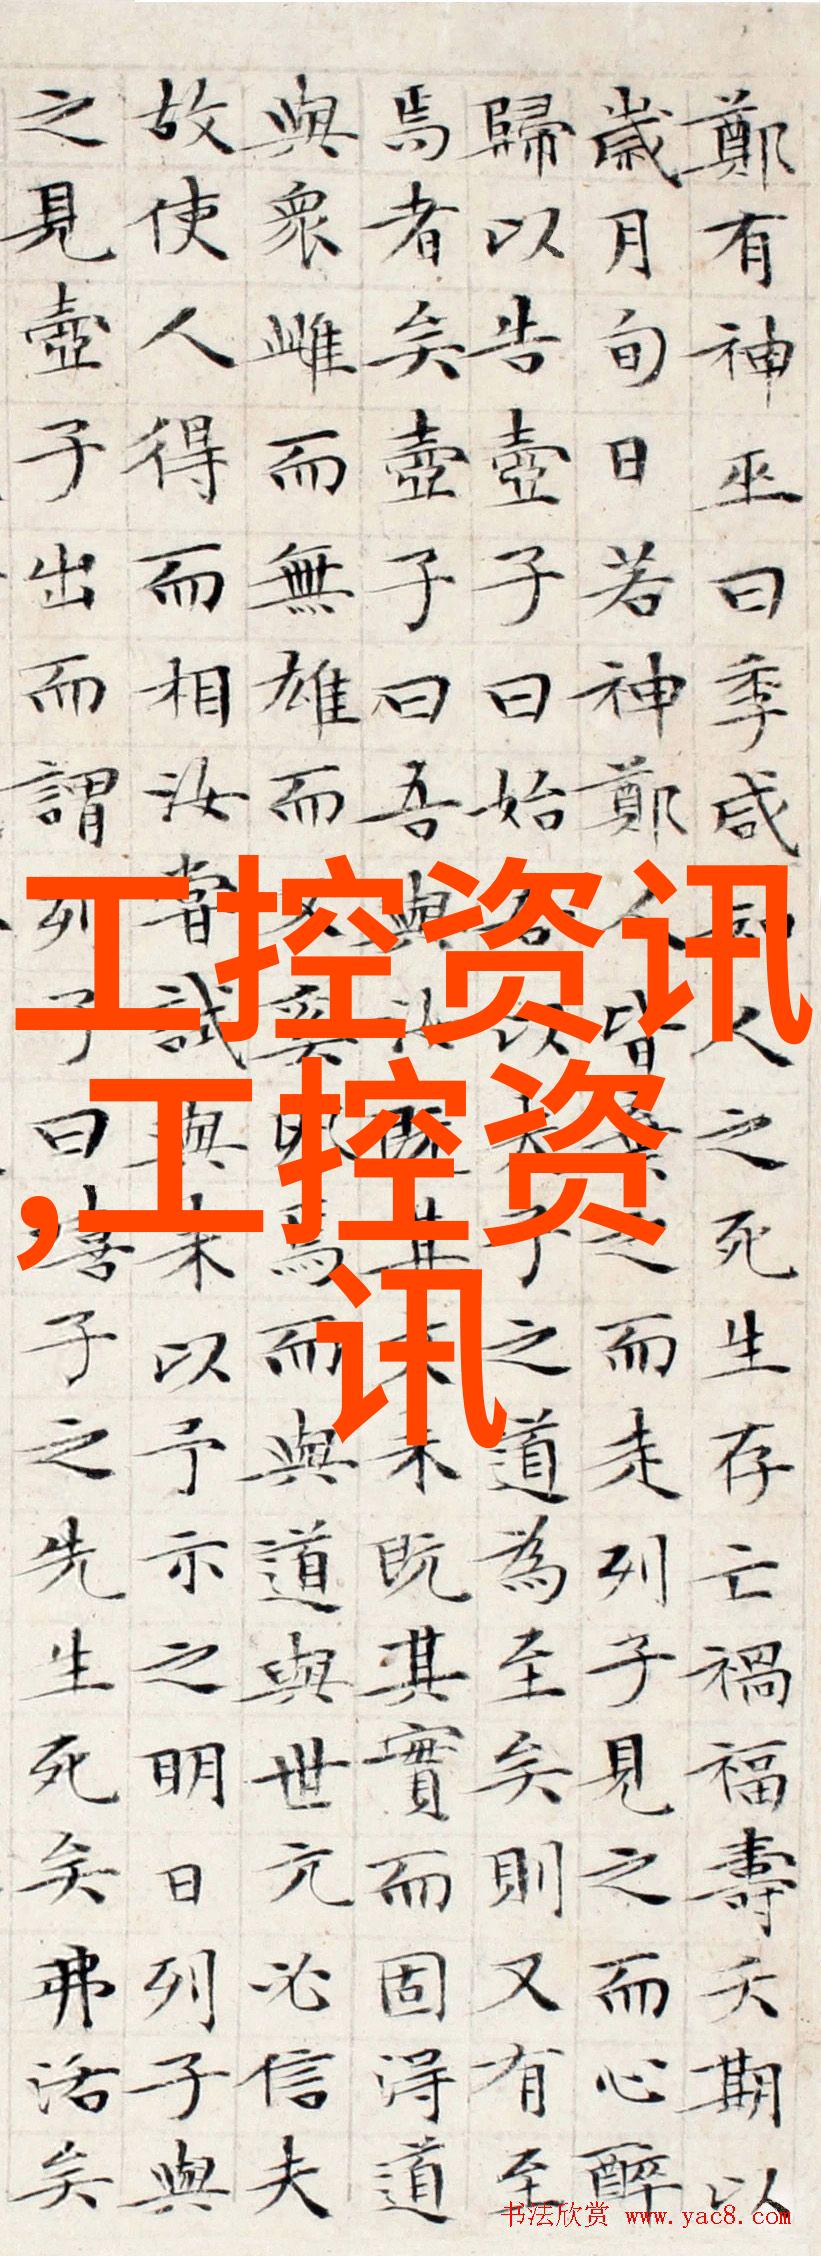 鄭有神巫曰季咸知人之死生存亡禍福壽夭期以
歲月旬日若神鄭人皆棄之而走列子見之而心醉
歸以告壺子曰始吾以夫子之道為至矣則又有至
焉者矣壺子曰吾與汝既其文未既其實而固得道
與眾雌而無雄而又奚卵焉而與道與世亢必信夫
故使人得而相汝嘗試與來以予示之明日列子與
之見壺子出而謂列子曰嘻子之先生死矣弗活矣
工控资讯
,工控资
讯
书法欣赏 www.yac8.com